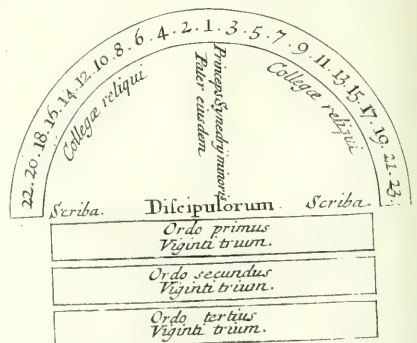 22. 20. 18. 16. 14. 12. 10. 8. 6. 4. 2. 1. 3. 5. 7. 9. 11. 13. 15. 17. 19. 21. 23.
Collegæ reliqui
Princeps Synedrij minoris
Pater eiusdem
Collegæ reliqui
Scriba. Discipulorum Scriba.
Ordo primus
Viginti trium.
Ordo secundus
Viginti trium.
Ordo tertius
Viginti trium.